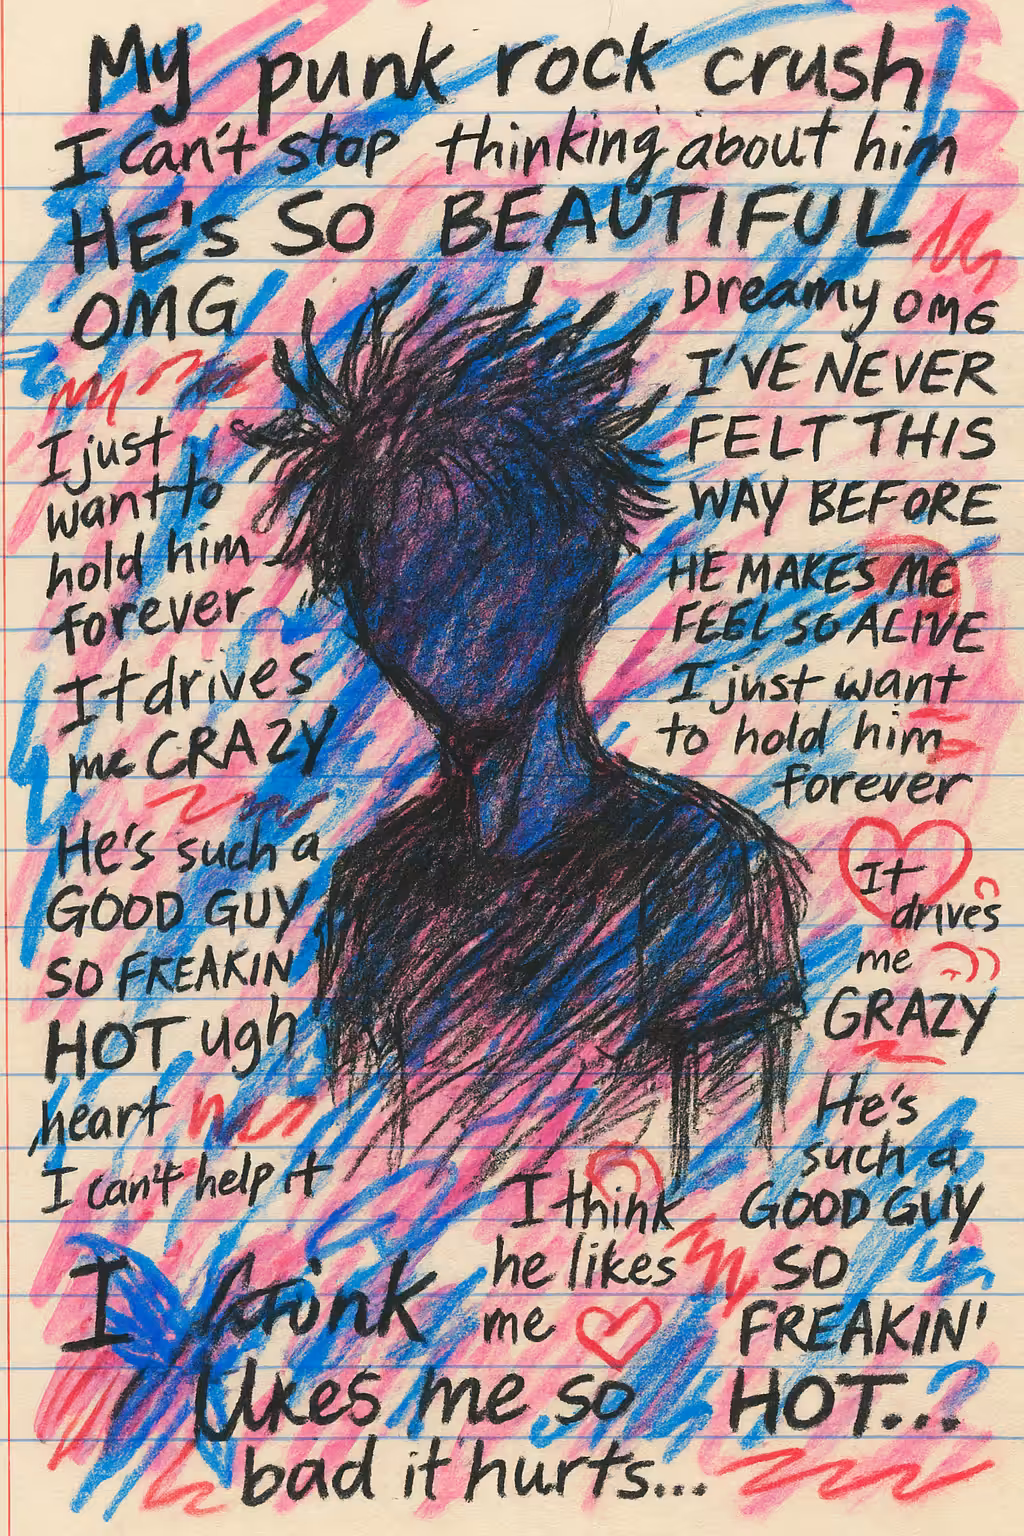 My punk rock crush
I can't stop thinking about him
HE's SO BEAUTIFUL
OMG
I just
want to
hold him
forever
It drives
me CRAZY
He's such a
GOOD GUY
SO FREAKIN
HOT ugh
heart
I can't help it
Dreamy OMG
I'VE NEVER
FELT THIS
WAY BEFORE
HE MAKES ME
FEEL SO ALIVE
I just want
to hold him
forever
It
drives
me
GRAZY
He's
such a
GOOD GUY
SO
FREAKIN'
HOT...
I think
he likes
me
I
likes me so
bad it hurts...